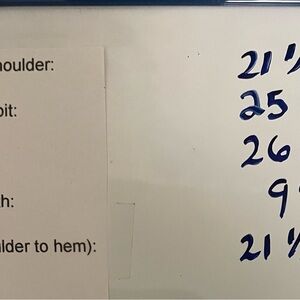 houlder: 21 1/
pit: 25
26
th: 9
ulder to hem): 21 1/